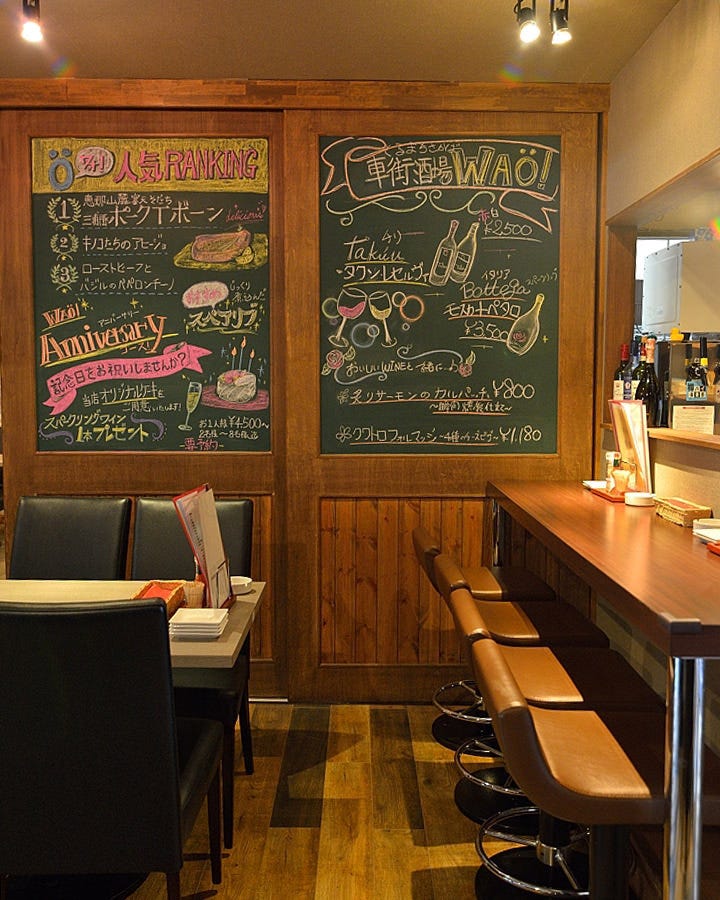 Ö 人気RANKING
1 恵那山麓寒天そだち
三浦豚ポークTボーン delicious
2 キノコたちのアヒージョ
3 ローストビーフと
バジルのペペロンチーノ
じっくり
煮込んだ
スペアリブ
WAÖ!
アニバーサリー
Anniversary
コース!
記念日をお祝いしませんか?
当店オリジナルケーキを
ご用意いたします!
スパークリングワイン
1本プレゼント
お1人様¥4,500~
2名様~8名様迄
要予約
くるまちさかば
車街酒場WAÖ!
赤白
¥2,500
チリ
Takuu
タクン レセルヴァ
イタリア
Bottega スパークリング
モスカートペタロ
¥3,500
おいしいWINEと一緒に…
炙リサーモンのカルパッチョ ¥800
クワトロフォルマッジ ~4種のチーズピザ~ ¥1,180